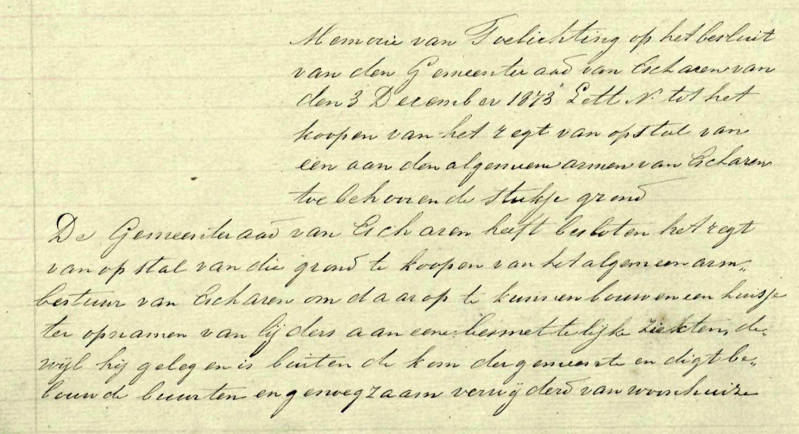 Memorie van Toelichting op het besluit
van den Gemeenteraad van Escharen van
den 3 December 1873 Lett N. tot het
koopen van het regt van opstal van
een aan den algemeene armen van Escharen
toebehoorende stukje grond
De Gemeenteraad van Escharen heeft besloten het regt
van opstal van die grond te koopen van het algemeen arm-
bestuur van Escharen om daarop te kunnen bouwen een huisje
ter opnamen van lijders aan eene besmettelijke ziekten, de-
wijl hij gelegen is buiten de kom der gemeente en digt be-
bouwde buurten en genoegzaam verwijderd van woonhuize